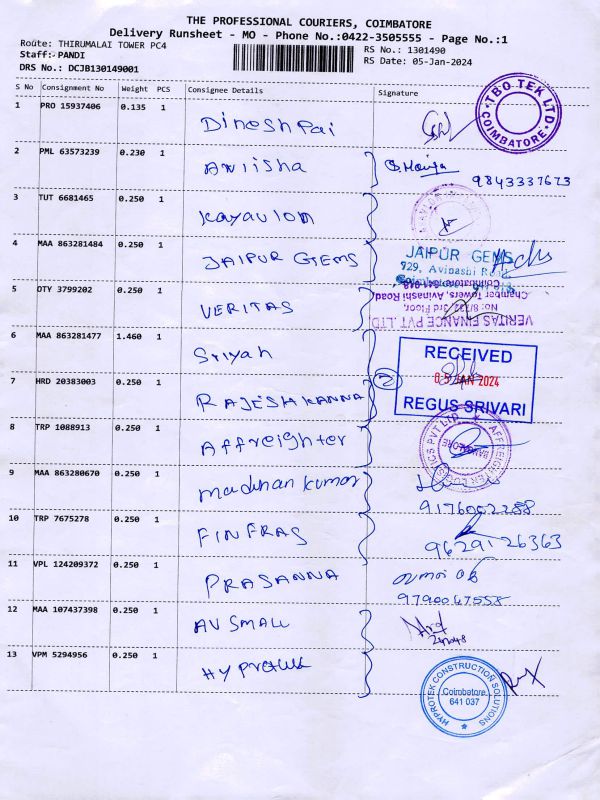 THE PROFESSIONAL COURIERS, COIMBATORE
Delivery Runsheet - MO - Phone No.:0422-3505555 - Page No.:1
Route: THIRUMALAI TOWER PC4
RS No.: 1301490
Staff: PANDI
RS Date: 05-Jan-2024
DRS No.: DCJB130149001
S No Consignment No Weight PCS Consignee Details Signature
1 PRO 15937406 0.135 1 Dinesh Pai
TBO TEK LTD. COIMBATORE
2 PML 63573239 0.230 1 Aniisha 9843337673
3 TUT 6681465 0.250 1
4 MAA 863281484 0.250 1 JAIPUR GEMS
JAIPUR GEMS
929, Avinashi Road,
5 OTY 3799202 0.250 1 VERITAS
VERITAS FINANCE PVT. LTD.
No: 8/732 3rd Floor,
Chamber Towers, Avinashi Road
Coimbatore
6 MAA 863281477 1.460 1 Sriyah
RECEIVED
05 JAN 2024
REGUS SRIVARI
7 HRD 20383003 0.250 1 RAJESH KANNA 2
8 TRP 1088913 0.250 1 Affreighter
9 MAA 863280670 0.250 1 Madhan Kumar
9176002288
10 TRP 7675278 0.250 1 FINFRAS
9629126363
11 VPL 124209372 0.250 1 PRASANNA
9790047558
12 MAA 107437398 0.250 1 AV SMALL
13 VPM 5294956 0.250 1
HYPROTEK CONSTRUCTION SOLUTIONS
Coimbatore
641 037